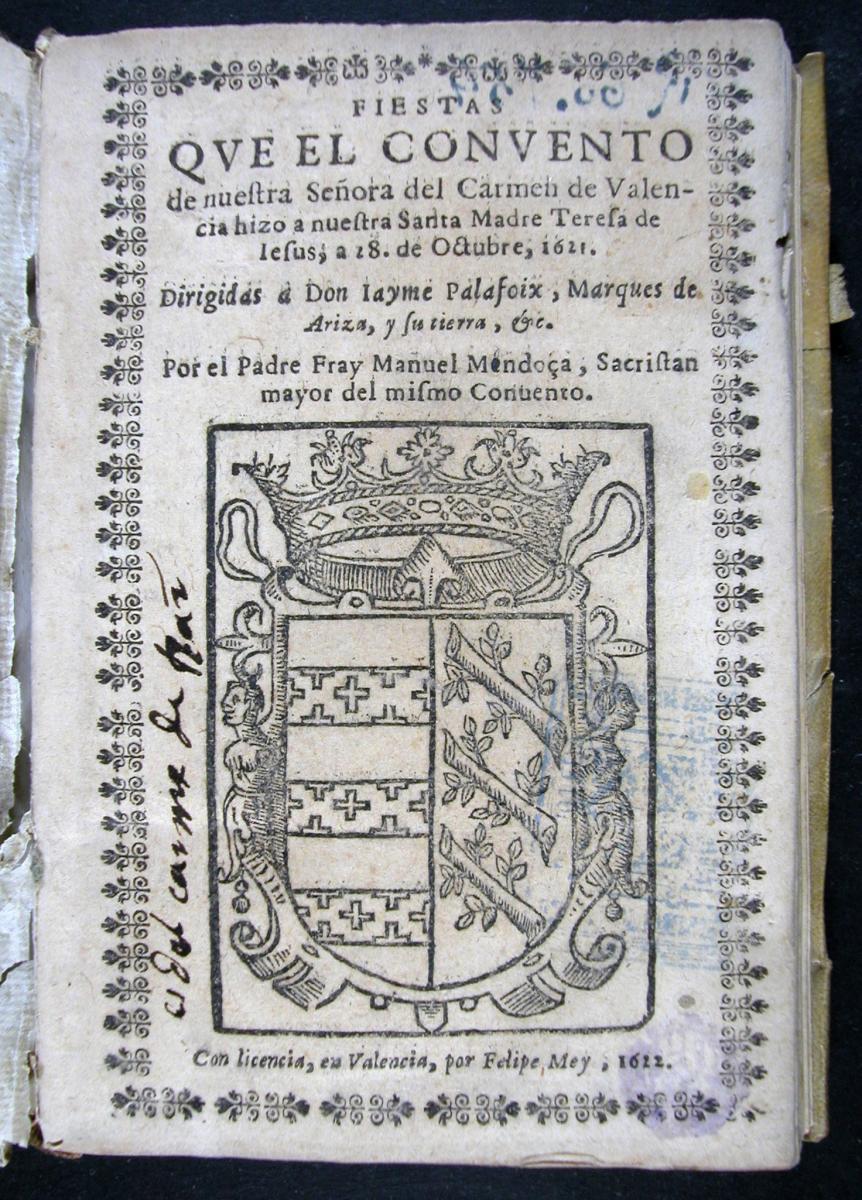 FIESTAS
QVE EL CONVENTO
de nueſtra Señora del Carmen de Valen-
cia hizo a nueſtra Santa Madre Tereſa de
Ieſus, a 28. de Octubre, 1621.
Dirigidas a Don Iayme Palafoix, Marques de
Ariza, y ſu tierra, &c.
Por el Padre Fray Manuel Mendoça, Sacriſtan
mayor del miſmo Conuento.
del carme de
Con licencia, en Valencia, por Felipe Mey, 1622.